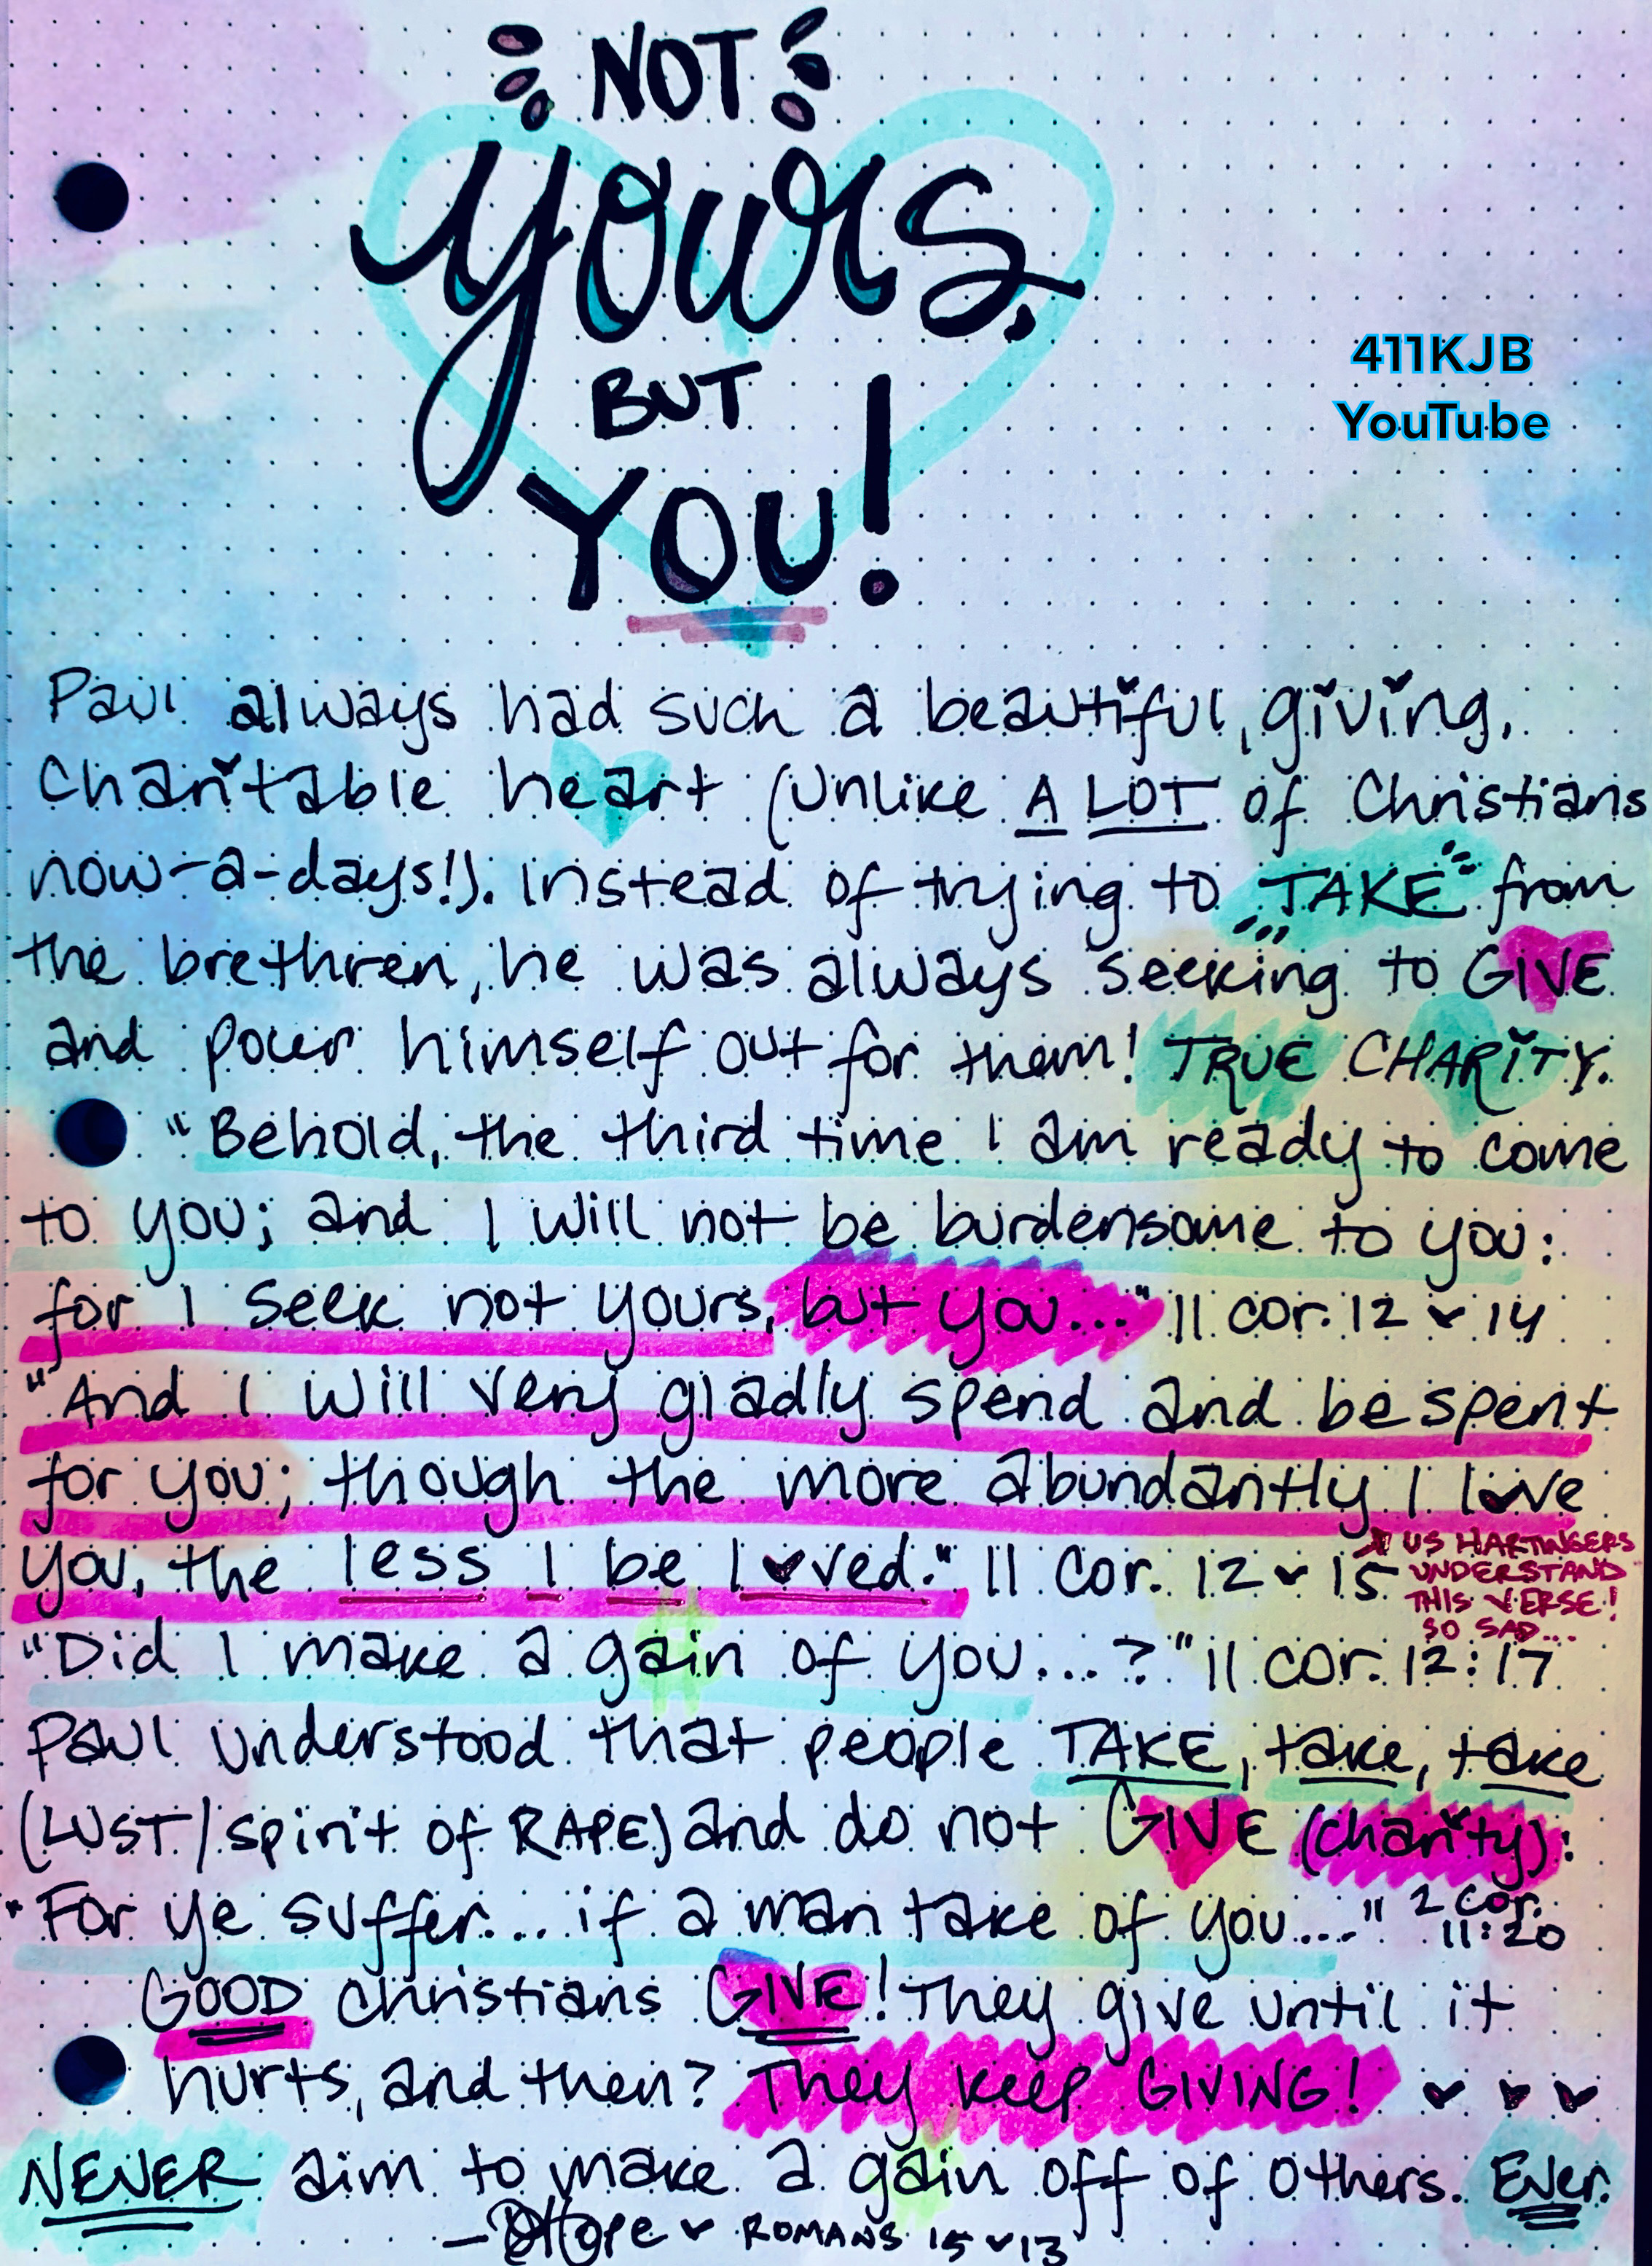 NOT
yours,
BUT
YOU!
411KJB
YouTube
Paul always had such a beautiful, giving,
Charitable heart (Unlike A LOT of Christians
now-a-days!). Instead of trying to TAKE from
the brethren, he was always seeking to GIVE
and pour himself out for them! TRUE CHARITY.
"Behold, the third time I am ready to come
to you; and I will not be burdensome to you:
for I seek not yours, but you..." II Cor. 12 ♥ 14
"And I will very gladly spend and be spent
for you; though the more abundantly I love
you, the less I be loved." II Cor. 12 ♥ 15
US HARTINGERS
UNDERSTAND
THIS VERSE!
SO SAD...
"Did I make a gain of you...?" II Cor. 12:17
Paul understood that people TAKE, take, take
(LUST/spirit of RAPE) and do not GIVE (charity):
"For ye suffer... if a man take of you..." 2 Cor.
11:20
GOOD Christians GIVE! They give until it
hurts, and then? They keep GIVING! ♥ ♥ ♥
NEVER aim to make a gain off of others. Ever.
- Hope ♥ ROMANS 15 ♥ 13